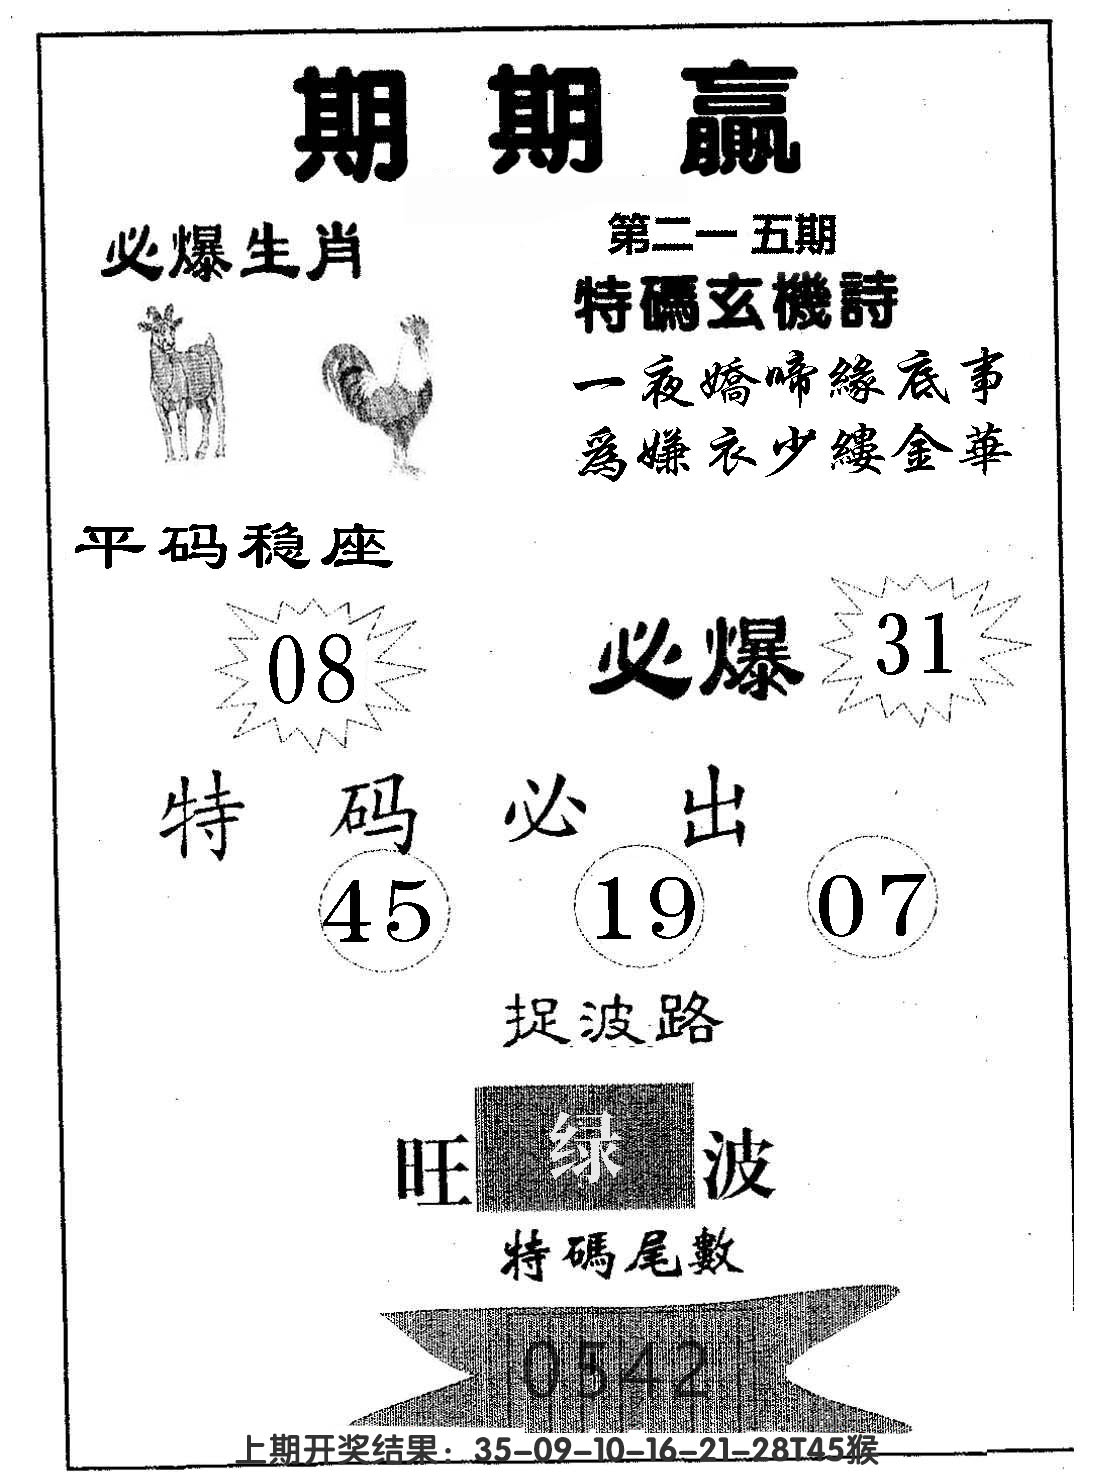 期期赢
必爆生肖
第二一五期
特碼玄機詩
一夜嬌啼緣底事
爲嫌衣少縷金華
平码稳座
08
必爆 31
特码必出
45 19 07
捉波路
旺 绿 波
特碼尾數
0542
上期开奖结果：35-09-10-16-21-28T45猴